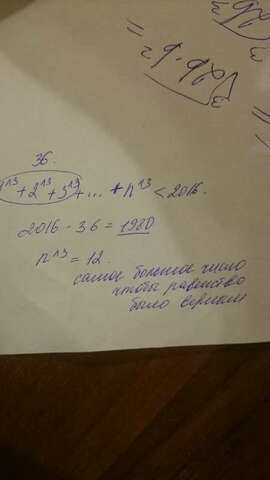 36.
1^3 + 2^3 + 3^3 + ... + n^3 < 2016.
2016 - 36 = 1980
n^3 = 12.
самое большое число
чтобы равенство
было верным